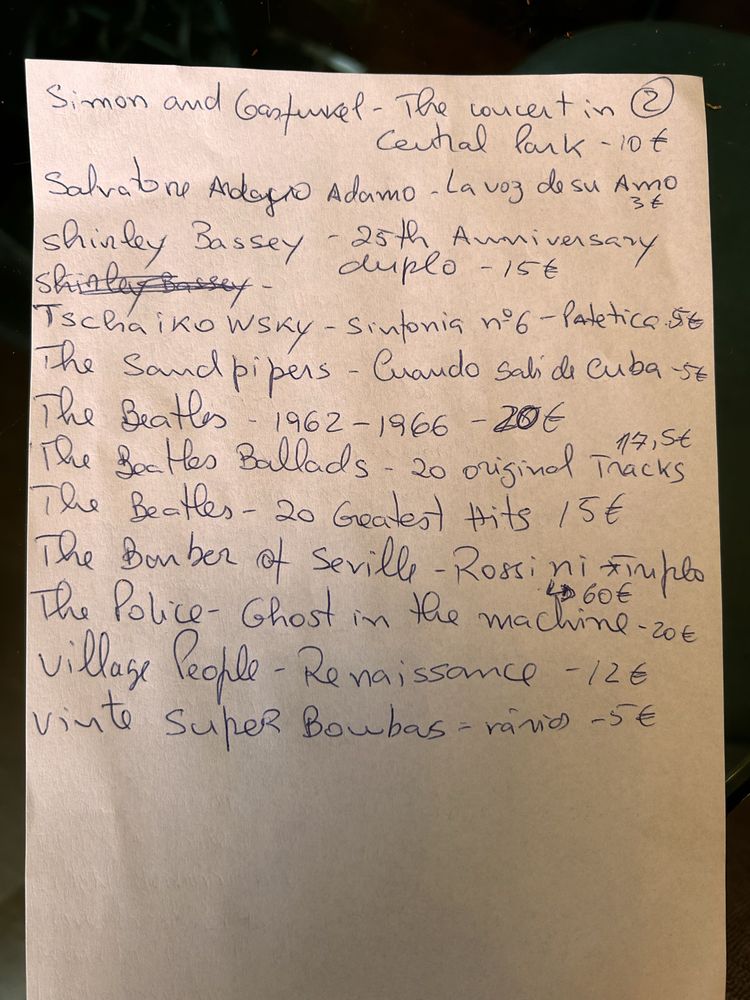 Simon and Gasfunkel - The concert in ②
Central Park - 10 €
Salvatore Adagio Adamo - La voz de su Amo
3 €
Shirley Bassey - 25th Anniversary
duplo - 15 €
Shirley Bassey -
Tschaikowsky - Sinfonia nº6 - Patetica 5€
The Sandpipers - Cuando Sali de Cuba - 5€
The Beatles - 1962-1966 - 20€
17,5€
The Beatles Ballads - 20 original Tracks
The Beatles - 20 Geatest Hits 15€
The Bonber of Seville - Rossini * Triplo
↳ 60€
The Police - Ghost in the machine - 20€
Village People - Renaissance - 12€
Vinte Super Bombas = vários - 5€